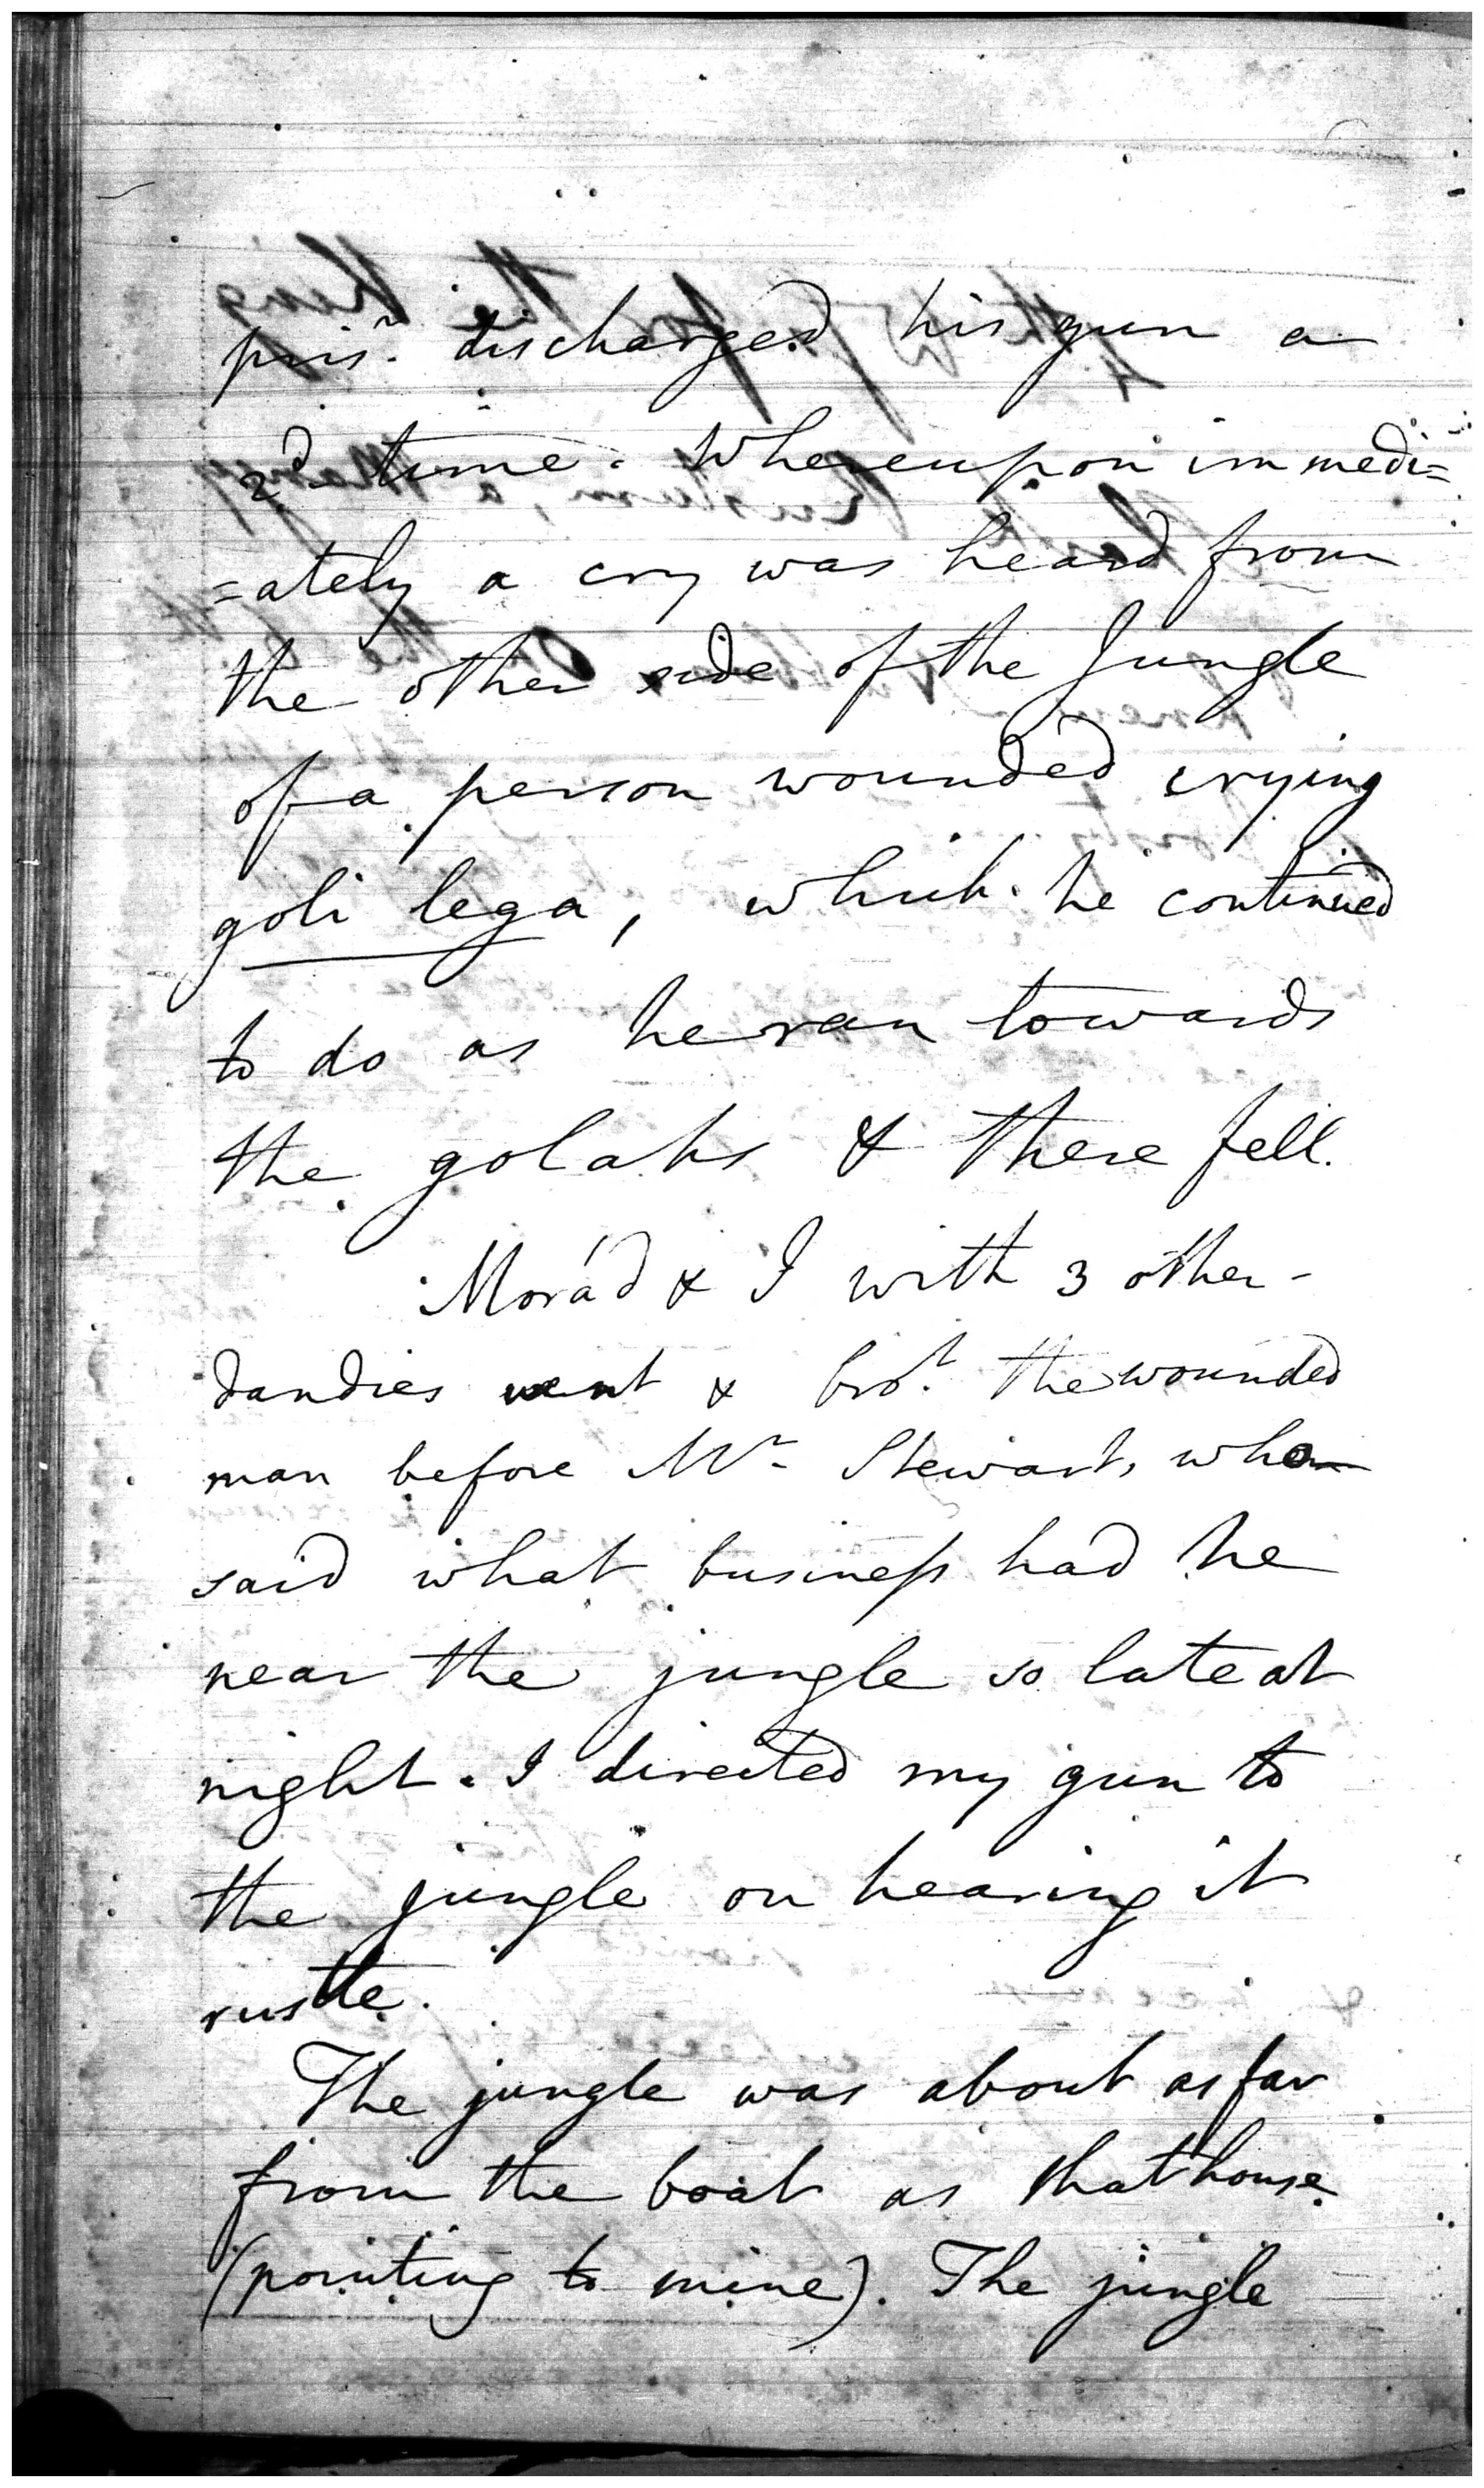 pris.^r discharged his gun a
2^d time. Whereupon immedi=
=ately a cry was heard from
the other side of the Jungle
of a person wounded crying
goli lega, which he continued
to do as he ran towards
the golahs & there fell.
Morád & I with 3 other
dandies went & bro.^t the wounded
man before M^r Stewart, who
said what business had he
near the jungle so late at
night. I directed my gun to
the jungle on hearing it
rustle.
The jungle was about as far
from the boat as that house
(pointing to mine). The jungle